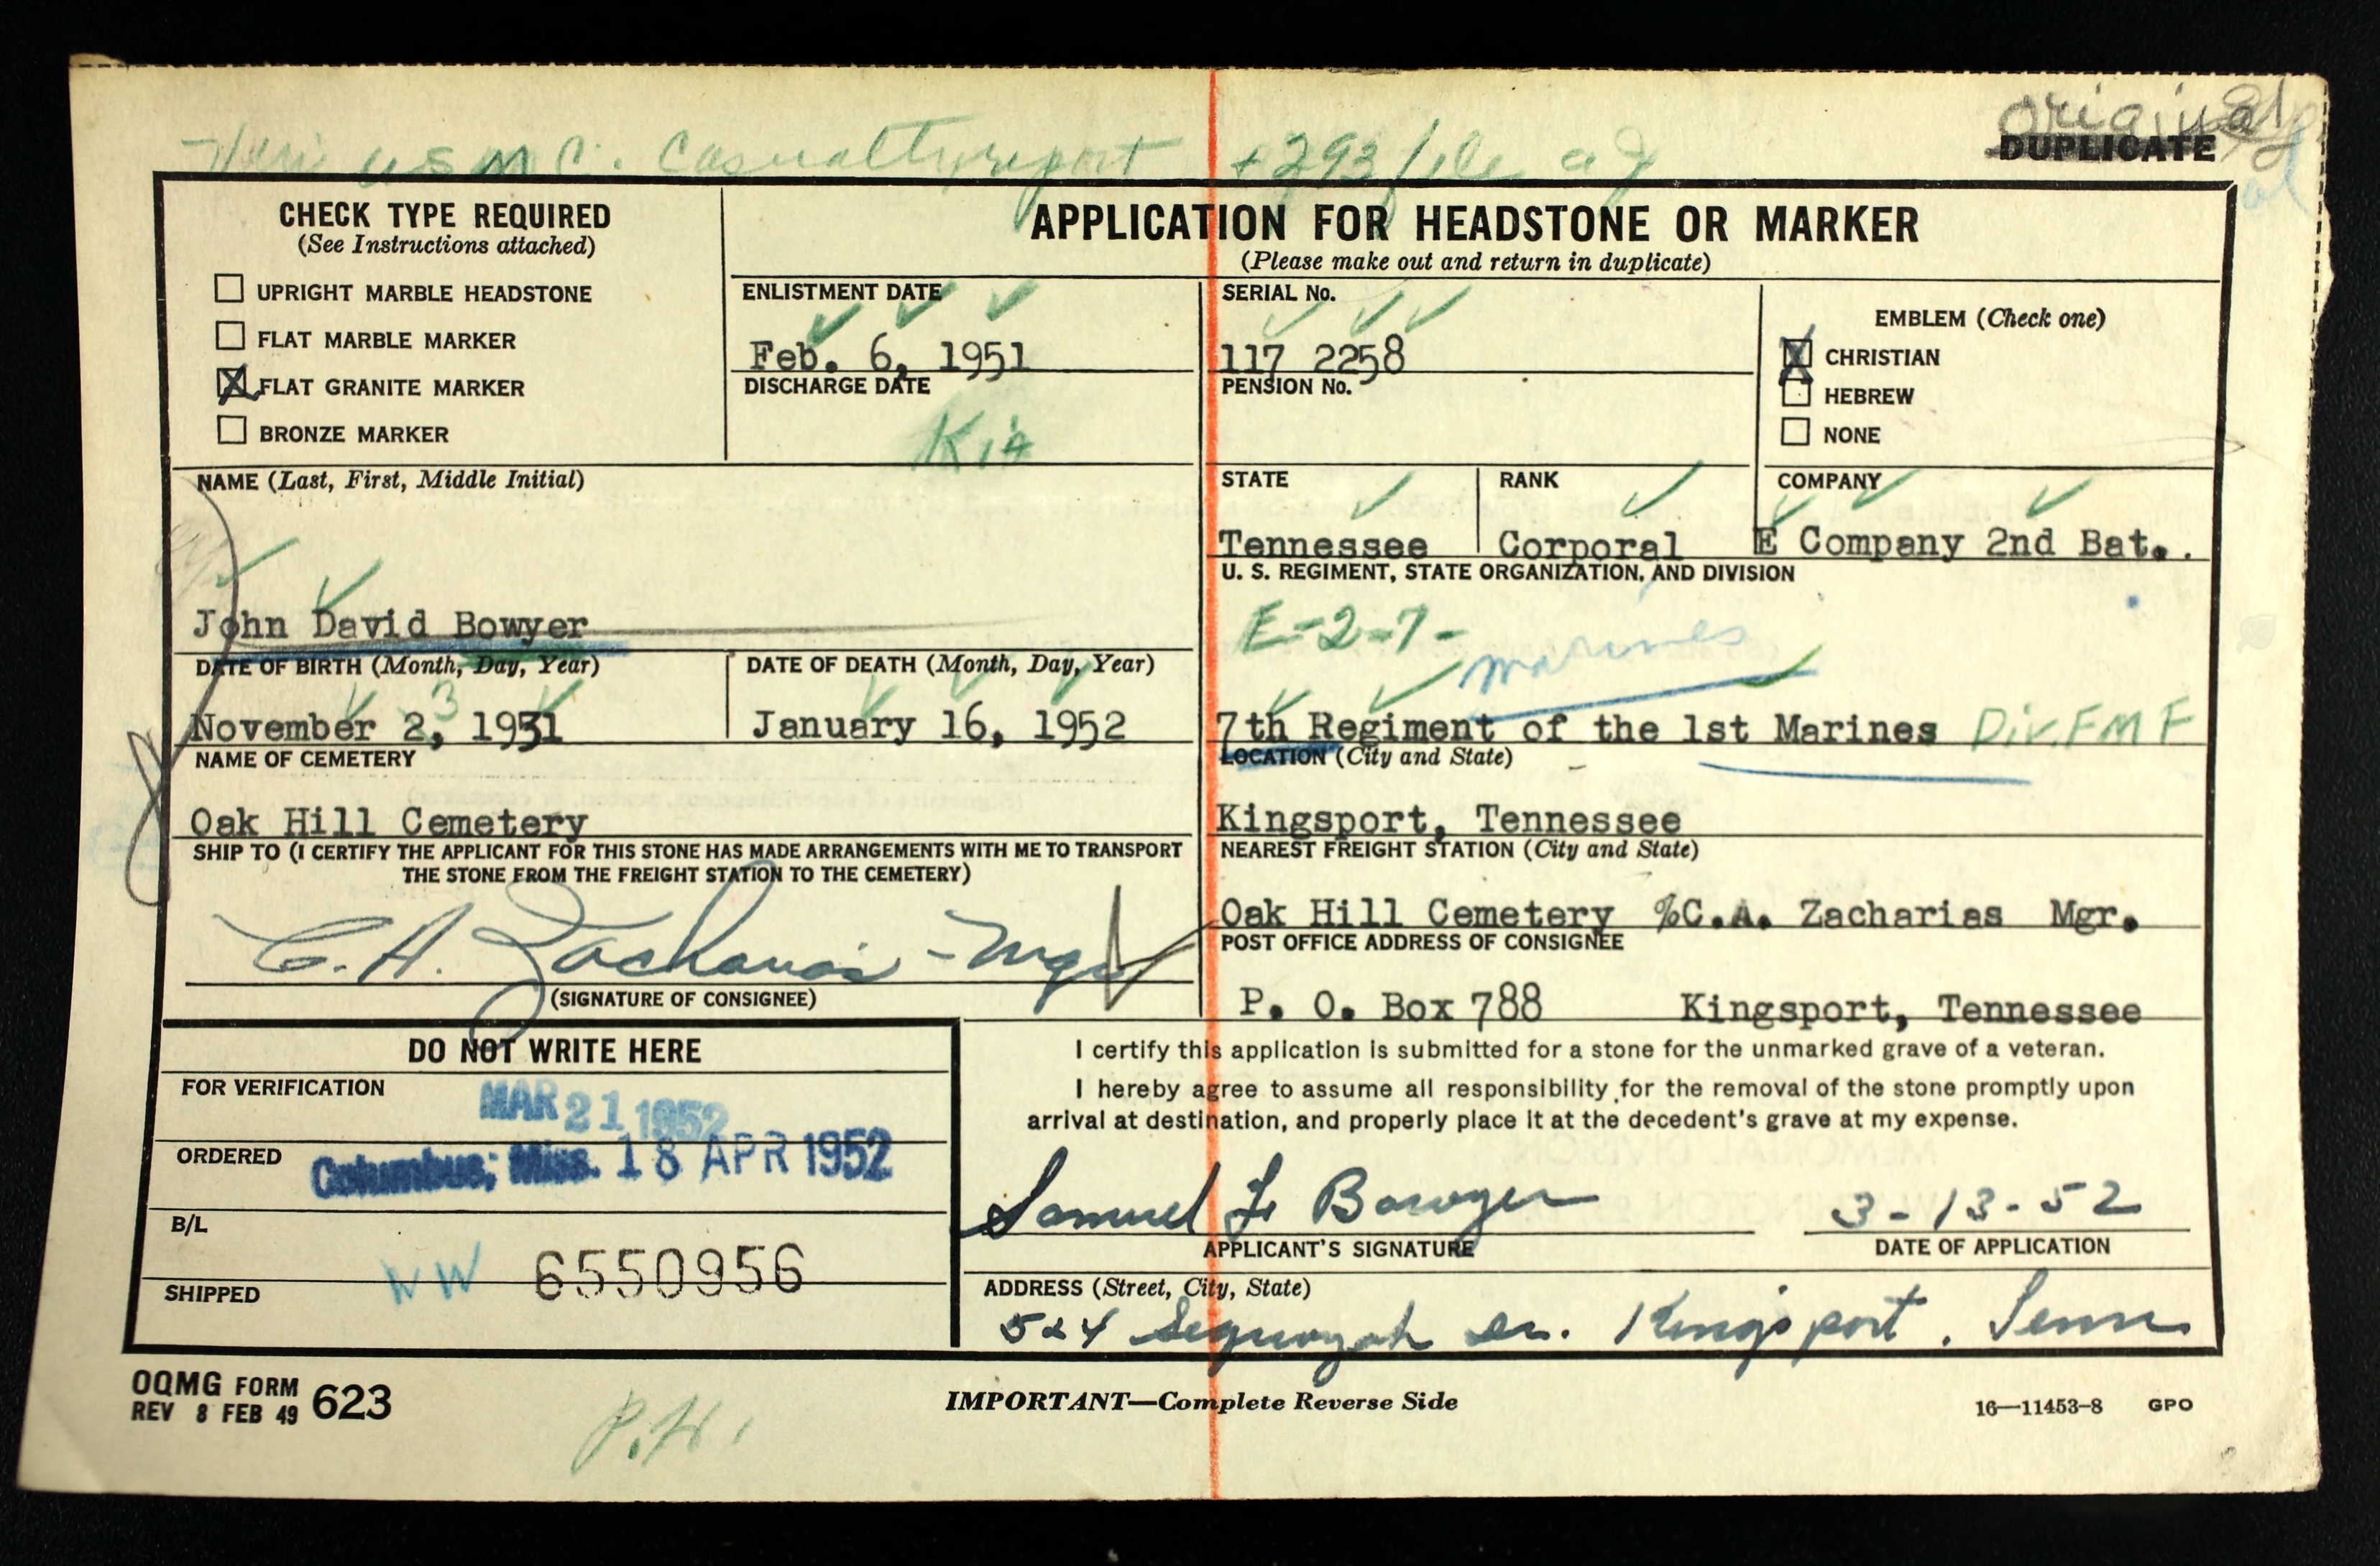 USMC. Casualty report + 293 file
original
DUPLICATE
CHECK TYPE REQUIRED
(See Instructions attached)
UPRIGHT MARBLE HEADSTONE
FLAT MARBLE MARKER
X FLAT GRANITE MARKER
BRONZE MARKER
APPLICATION FOR HEADSTONE OR MARKER
(Please make out and return in duplicate)
ENLISTMENT DATE
Feb. 6, 1951
DISCHARGE DATE
KIA
SERIAL No.
117 2258
PENSION No.
EMBLEM (Check one)
X CHRISTIAN
HEBREW
NONE
NAME (Last, First, Middle Initial)
John David Bowyer
STATE
Tennessee
RANK
Corporal
COMPANY
E Company 2nd Bat..
U. S. REGIMENT, STATE ORGANIZATION, AND DIVISION
E-2-7-
marines
7th Regiment of the 1st Marines Div. FMF
DATE OF BIRTH (Month, Day, Year)
3
November 2, 1931
DATE OF DEATH (Month, Day, Year)
January 16, 1952
NAME OF CEMETERY
Oak Hill Cemetery
LOCATION (City and State)
Kingsport, Tennessee
SHIP TO (I CERTIFY THE APPLICANT FOR THIS STONE HAS MADE ARRANGEMENTS WITH ME TO TRANSPORT
THE STONE FROM THE FREIGHT STATION TO THE CEMETERY)
C. A. Zacharias - Mgr
(SIGNATURE OF CONSIGNEE)
NEAREST FREIGHT STATION (City and State)
Oak Hill Cemetery %C.A. Zacharias Mgr.
POST OFFICE ADDRESS OF CONSIGNEE
P. O. Box 788 Kingsport, Tennessee
DO NOT WRITE HERE
FOR VERIFICATION
MAR 21 1952
ORDERED
Columbus, Miss. 18 APR 1952
B/L
WW 6550956
SHIPPED
I certify this application is submitted for a stone for the unmarked grave of a veteran.
I hereby agree to assume all responsibility for the removal of the stone promptly upon
arrival at destination, and properly place it at the decedent's grave at my expense.
Samuel F. Bowyer
APPLICANT'S SIGNATURE
3-13-52
DATE OF APPLICATION
ADDRESS (Street, City, State)
524 Sequoyah Dr. Kingsport, Tenn
OQMG FORM 623
REV 8 FEB 49
P.H.
IMPORTANT—Complete Reverse Side
16—11453-8 GPO